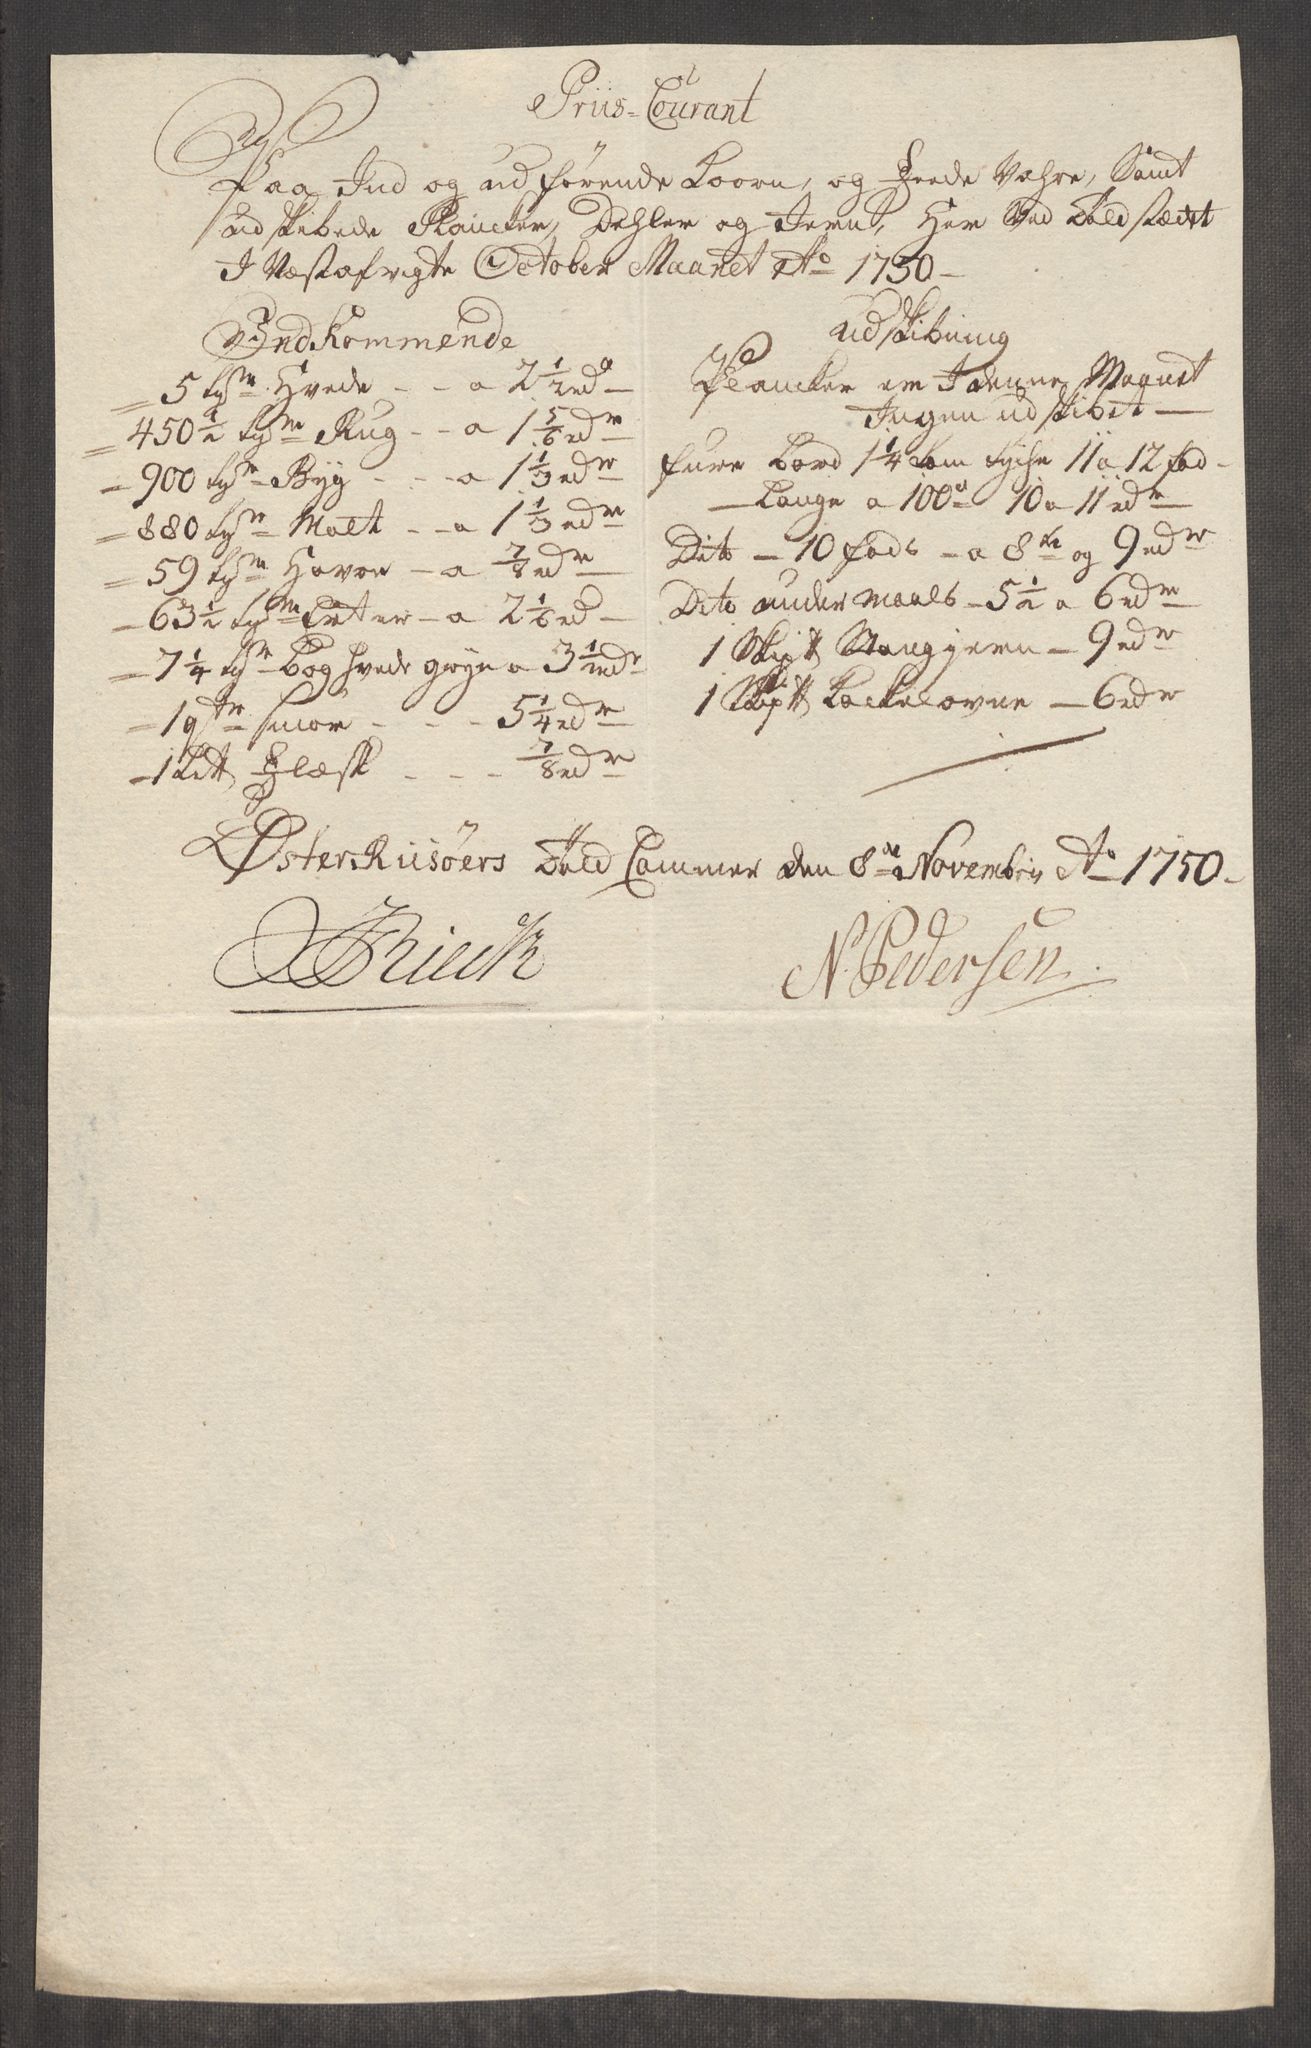 Priis-Courant
Paa Ind og udførende Koorn, og Feede Vahre, Samt
udskibede Plancker, Dehler og Jern, Her Ved Toldstædet
I Næstafvigte October Maanet Ao 1750
Indkommende
5 tr Hvede - - a 2 1/2 rd
450 1/2 tr Rug - - a 1 5/6 rdr
900 tr Byg - - - a 1 1/3 rdr
880 tr Malt - - a 1 1/3 rdr
59 tr Havre - a 7/8 rdr
63 1/2 tr Erter - a 2 1/6 rd
7 1/4 tr Boghvede gryn a 3 1/2 rdr
1 qtr Smør - - - 5 1/4 rdr
1 Flæsk - - - 7/8 rdr
Udskibning
Plancker er I denne Maanet
Ingen udskibet
furre Bord 1 1/4 tom tycke 11 a 12 fod
Lange a 100de 10 a 11 rdr
Dito - 10 fods - a 8te og 9 rdr
Dito under Maals - 5 1/2 a 6 rdr
1 Skip℔ Stangjern - 9 rdr
1 Skip℔ Kackelovne - 6 rdr
ØsterRiisøers Told Cammer den 8de Novembris Ao 1750
N. Pedersen